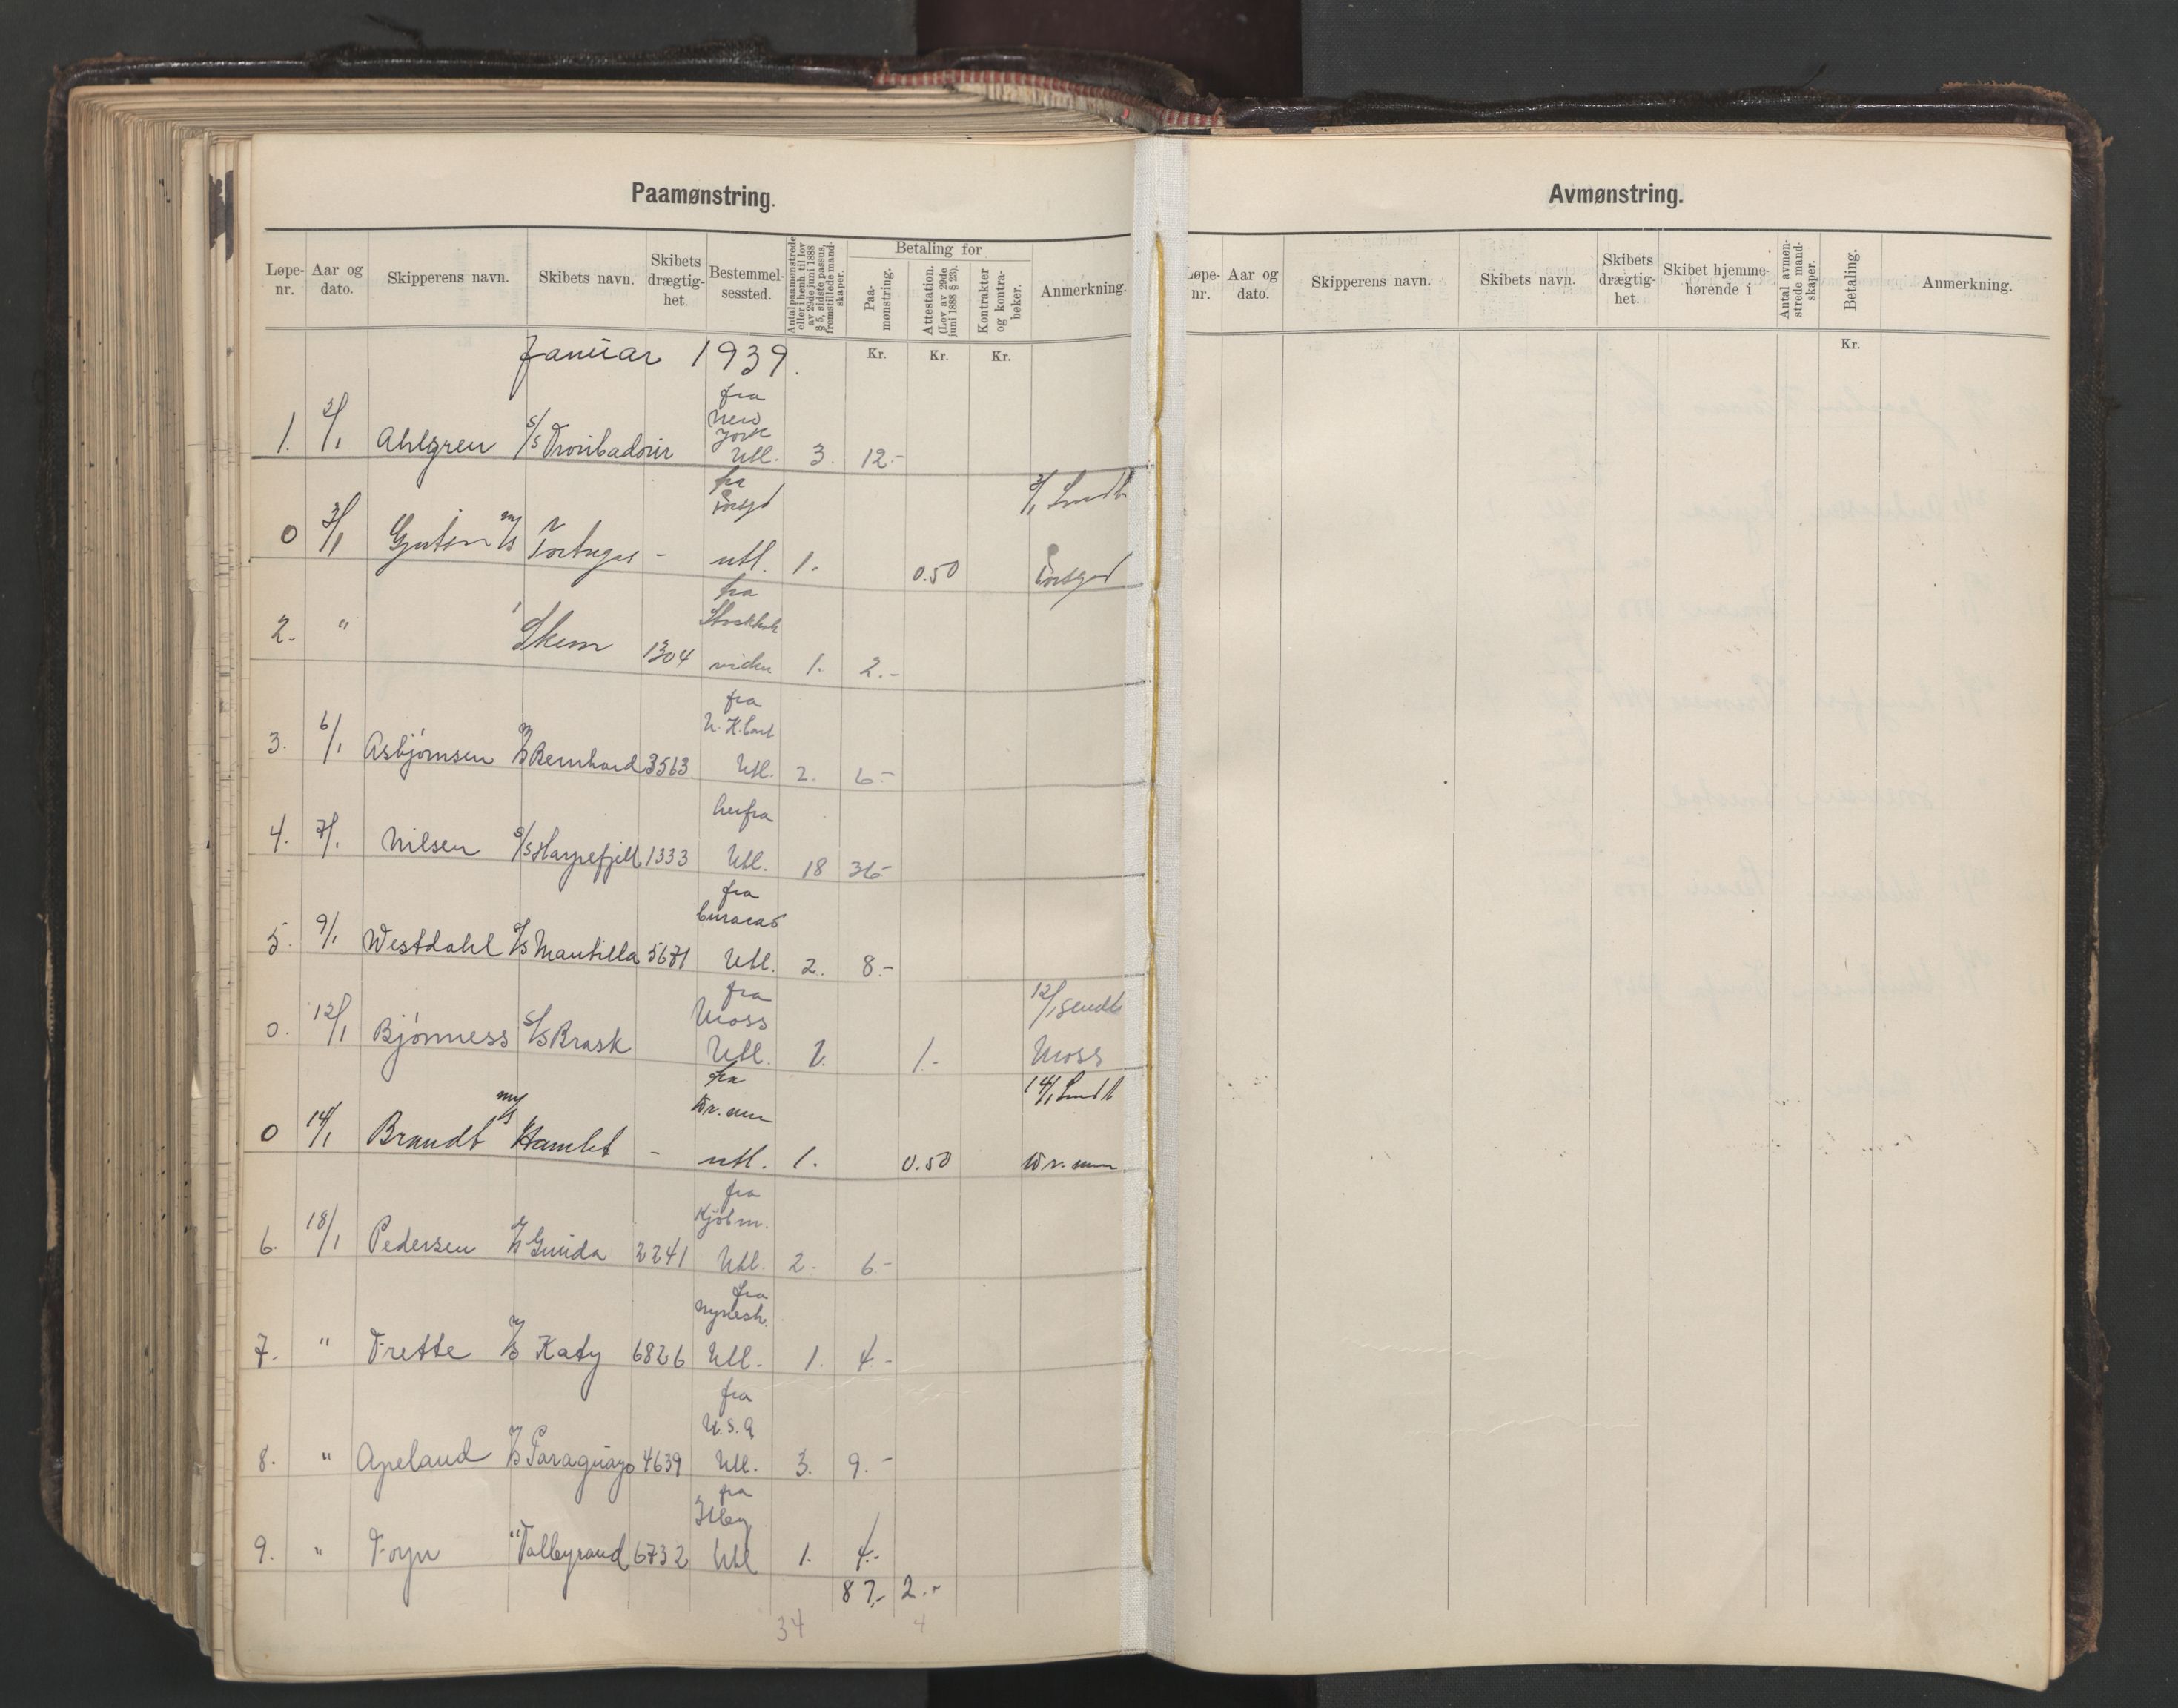 Paamønstring.
Løpe-nr. Aar og dato. Skipperens navn. Skibets navn. Skibets drægtig-het. Bestemmel-sessted. Antal paamønstrede eller i henh. til lov av 29de juni 1888 § 5, sidste passus, fremstillede mand-skaper. Betaling for Paa-mønstring. Attestation. (Lov av 29de juni 1888 § 23). Kontrakter og kontra-bøker. Anmerkning.
Kr. Kr. Kr.
Januar 1939.
fra
New
York
1. 2/1 Ahlgren S/S Troubadour Utl. 3. 12.-
fra
0 3/1 M/S Tortugas - utl. 1. 0.50
fra
Stockholm
2. " Skum 1304 1. 2.-
fra
U.K. Cont
3. 6/1 Asbjørnsen M/S Bernhard 3563 Utl. 2. 6.-
herfra
4. 7/1 Nilsen S/S Harpefjell 1333 Utl. 18 36-
fra
Curacao
5. 9/1 Westdahl S/S Mantilla 5671 Utl. 2. 8.-
fra
Moss
0. 12/1 Bjønness S/S Brask Utl. 2. 1.- 12/1 sendt Moss
fra
0 14/1 Brandt M/S Hamlet - utl. 1. 0.50 14/1 Sendt
fra
Kjøbm.
6. 18/1 Pedersen M/S Gunda 2241 Utl. 2. 6.-
fra
Nynesh.
7. " Frette M/S Katy 6826 Utl. 1. 4.-
fra
U.S.A
8. " Apeland M/S Paraguayo 4639 Utl. 3. 9.-
fra
Hbg
9. " Foyn " Talleyrand 6732 Utl 1. 4.-
87.- 2.-
34 4
Avmønstring.
Løpe-nr. Aar og dato. Skipperens navn. Skibets navn. Skibets drægtig-het. Skibet hjemme-hørende i Antal avmøn-strede mand-skaper. Betaling. Anmerkning.
Kr.